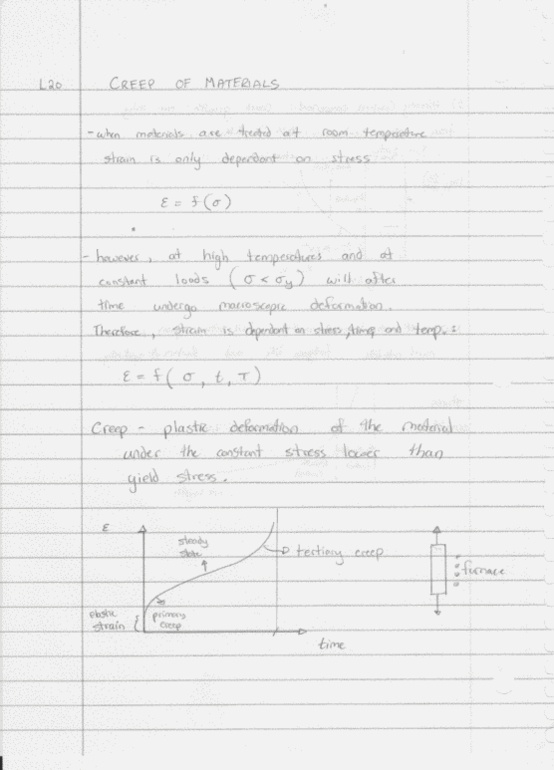 L20 CREEP OF MATERIALS
- when materials are treated at room temperature
strain is only dependant on stress
ε = f(σ)
- however, at high temperatures and at
constant loads (σ < σy) will after
time undergo macroscopic deformation.
Therefore, strain is dependant on stress, time, and temp.:
ε = f(σ, t, T)
Creep - plastic deformation of the material
under the constant stress lower than
yield stress.
ε
steady
state
tertiary creep
furnace
plastic
strain
primary
creep
time